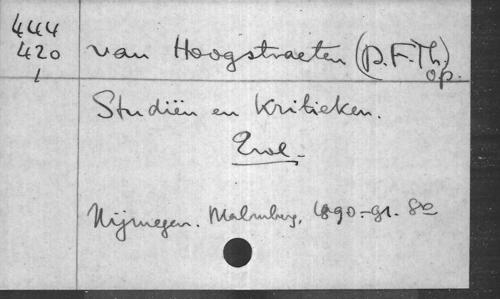 444
420 van Hoogstraeten (P. F. Th.)
1 op.
Studiën en Kritieken.
2 vol.
Nijmegen. Malmberg, 1890-91. 8º